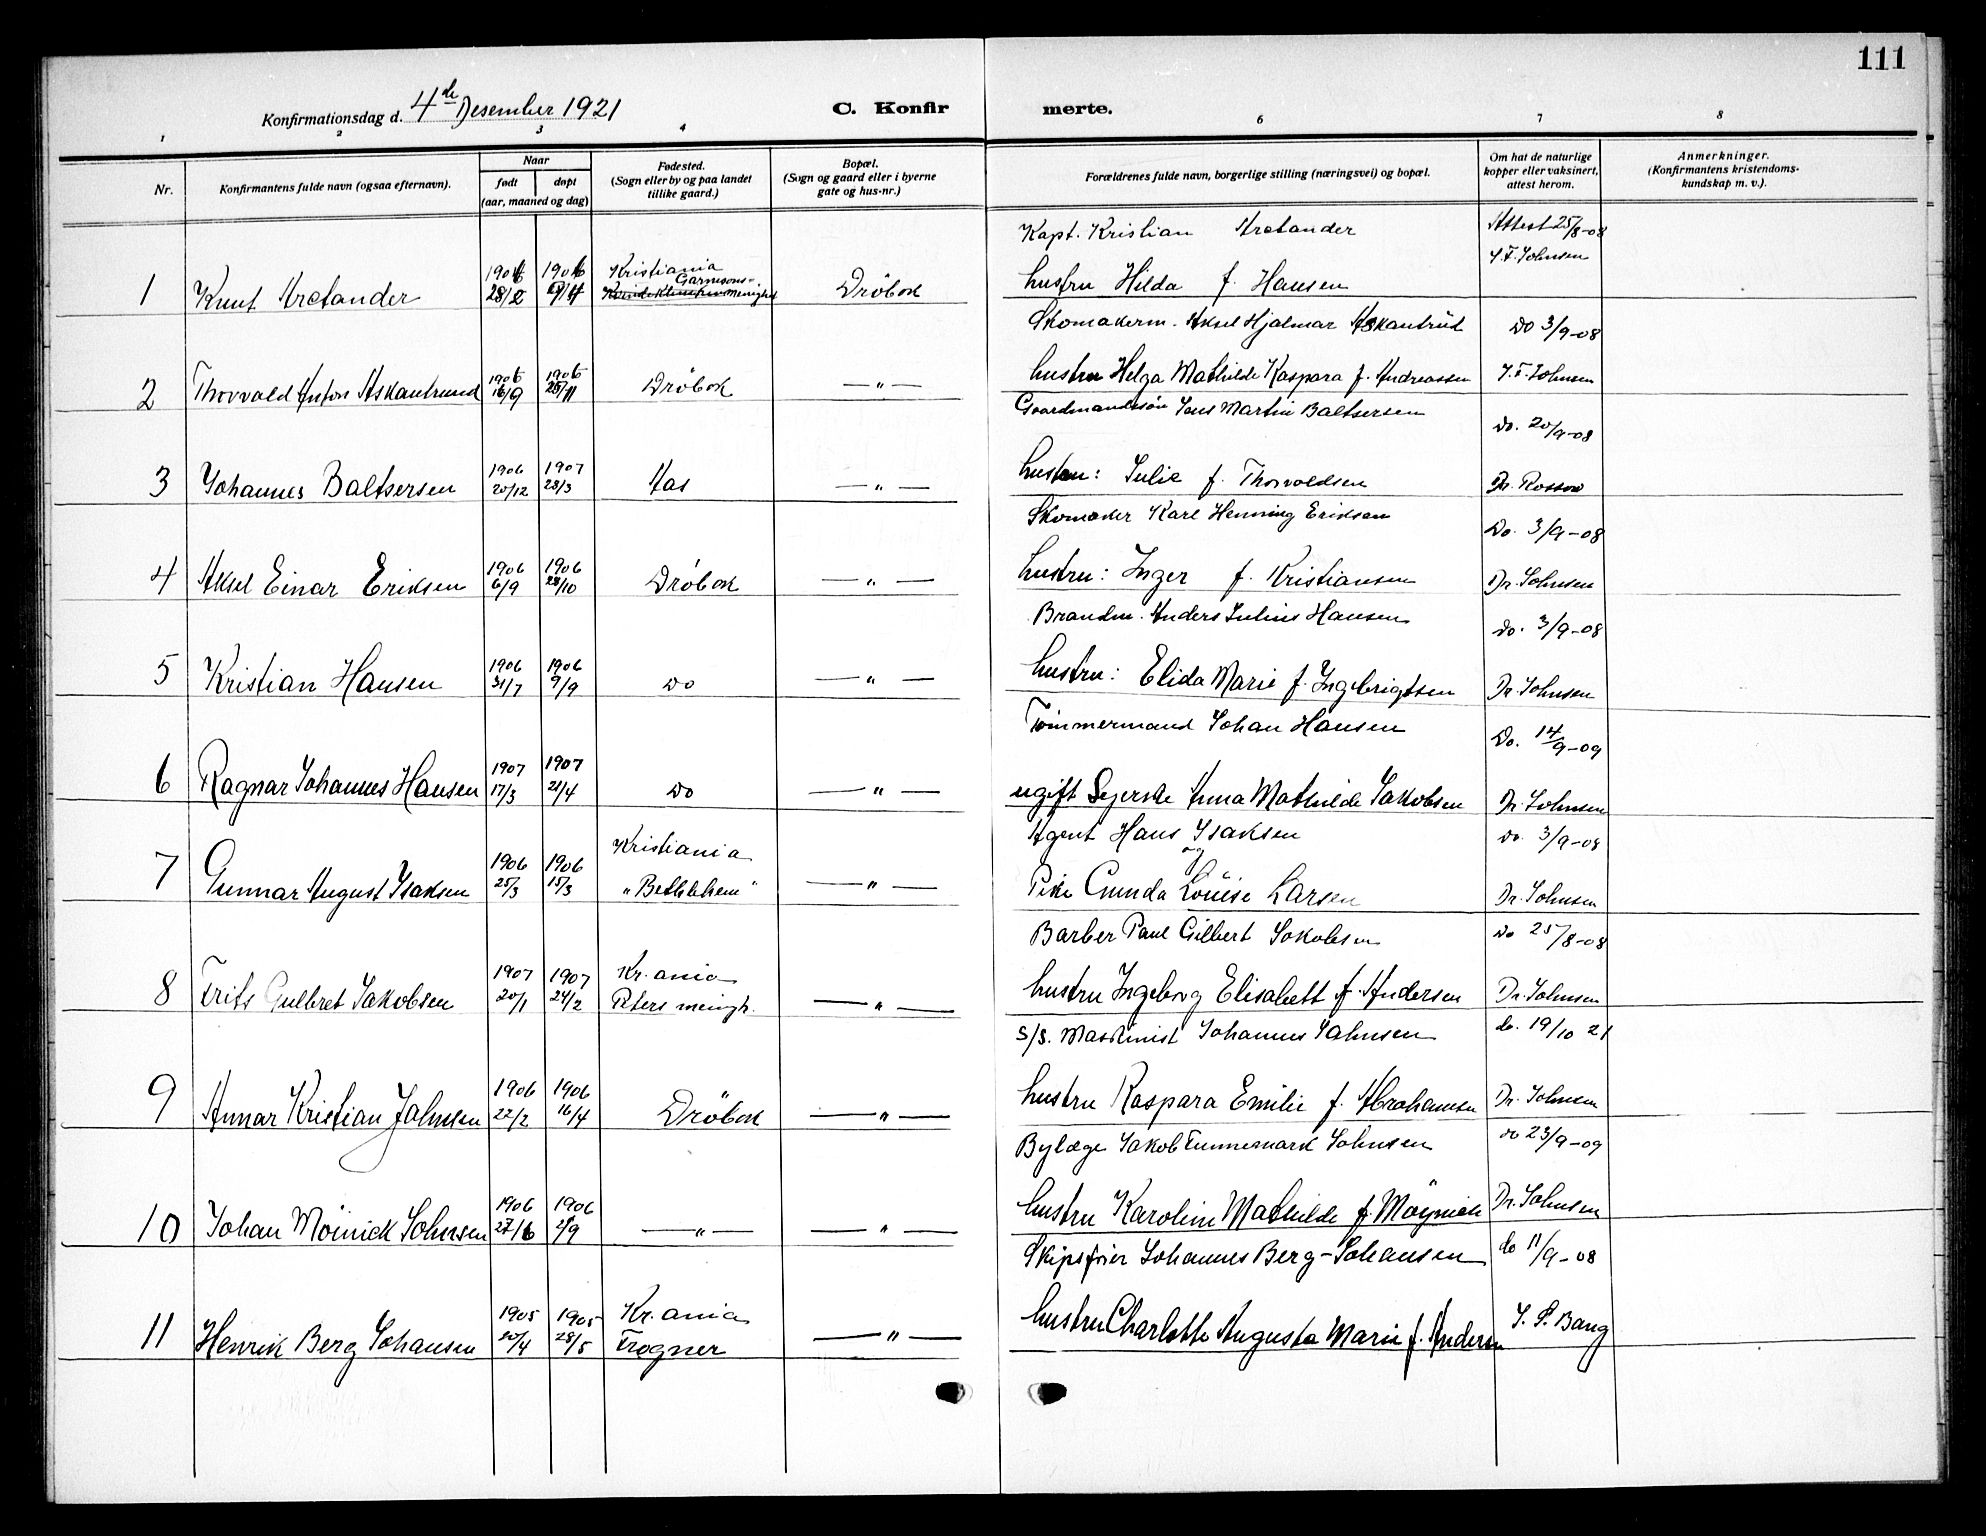 111
Konfirmationsdag d. 4de Desember 1921
C. Konfirmerte.
1 2 3 4 6 7 8
Nr.
Konfirmantens fulde navn (ogsaa efternavn).
Naar
født
døpt
(aar, maaned og dag)
Fødested.
(Sogn eller by og paa landet
tillike gaard.)
Bopæl.
(Sogn og gaard eller i byerne
gate og hus-nr.)
Forældrenes fulde navn, borgerlige stilling (næringsvei) og bopæl.
Om hat de naturlige
kopper eller vaksinert,
attest herom.
Anmerkninger.
(Konfirmantens kristendoms-
kundskap m. v.).
Kapt. Kristian Arctander Attest 25/8-08
1906 1906 Kristiania J. F. Johnsen
Garnisons-
1 Knut Arctander 28/2 menighet Drøbak hustru Hilda f. Hansen
Skomakerm. Aksel Hjalmar Askautrud Do 3/9-08
1906 1906
2 Thorvald Anton Askautrud 16/9 25/11 Drøbak —〃— hustru Helga Mathilde Kaspara f. Andreassen J. F. Johnsen
Gaardmandssøn Jens Martin Baltsersen Do. 20/9-08
1906 1907
3 Johannes Baltsersen 20/12 28/3 Aas —〃— hustru: Julie f. Thorvaldsen Dr. Rossow
Skomaker Karl Henning Eriksen Do. 3/9-08
1906 1906
4 Aksel Einar Eriksen 6/9 28/10 Drøbak —〃— hustru: Inger f. Kristiansen Dr. Johnsen
Brandm. Anders Julius Hansen Do. 3/9-08
1906 1906
5 Kristian Hansen 31/7 9/9 Do —〃— hustru: Elida Marie f. Ingebrigtsen Dr. Johnsen
Tømmermand Johan Hansen Do. 14/9-09
1907 1907
6 Ragnar Johannes Hansen 17/3 21/4 Do —〃— ugift Syerske Anna Mathilde Jakobsen Dr. Johnsen
Kristiania Agent Hans Isaksen Do. 3/9-08
1906 1906 og
7 Gunnar August Isaksen 25/3 15/3 „Bethlehem“ —〃— Pike Gunda Louise Larsen Dr. Johnsen
Barber Paul Gilbert Jakobsen Do 25/8-08
1907 1907 Kr.ania
8 Frits Gulbret Jakobsen 20/1 24/2 Peters mengh. —〃— hustru Ingeborg Elisabett f. Andersen Dr. Johnsen
S/S. Maskinist Johannes Jahnsen do. 19/10 21
1906 1906
9 Annar Kristian Jahnsen 22/2 16/4 Drøbak —〃— hustru Kaspara Emilie f. Abrahamsen Dr. Johnsen
Bylæge Jakob Finnemark Johnsen do 23/9-09
1906 1906
10 Johan Møinick Johnsen 27/6 2/9 —〃— —〃— hustru Karoline Mathilde f. Møynick Dr. Johnsen
Skipsfører Johannes Berg-Johansen do 11/9-08
1905 1905 Kr.ania
11 Henrik Berg Johansen 20/4 28/5 Frogner —〃— hustru Charlotte Augusta Marie f. Andersen J. P. Bang